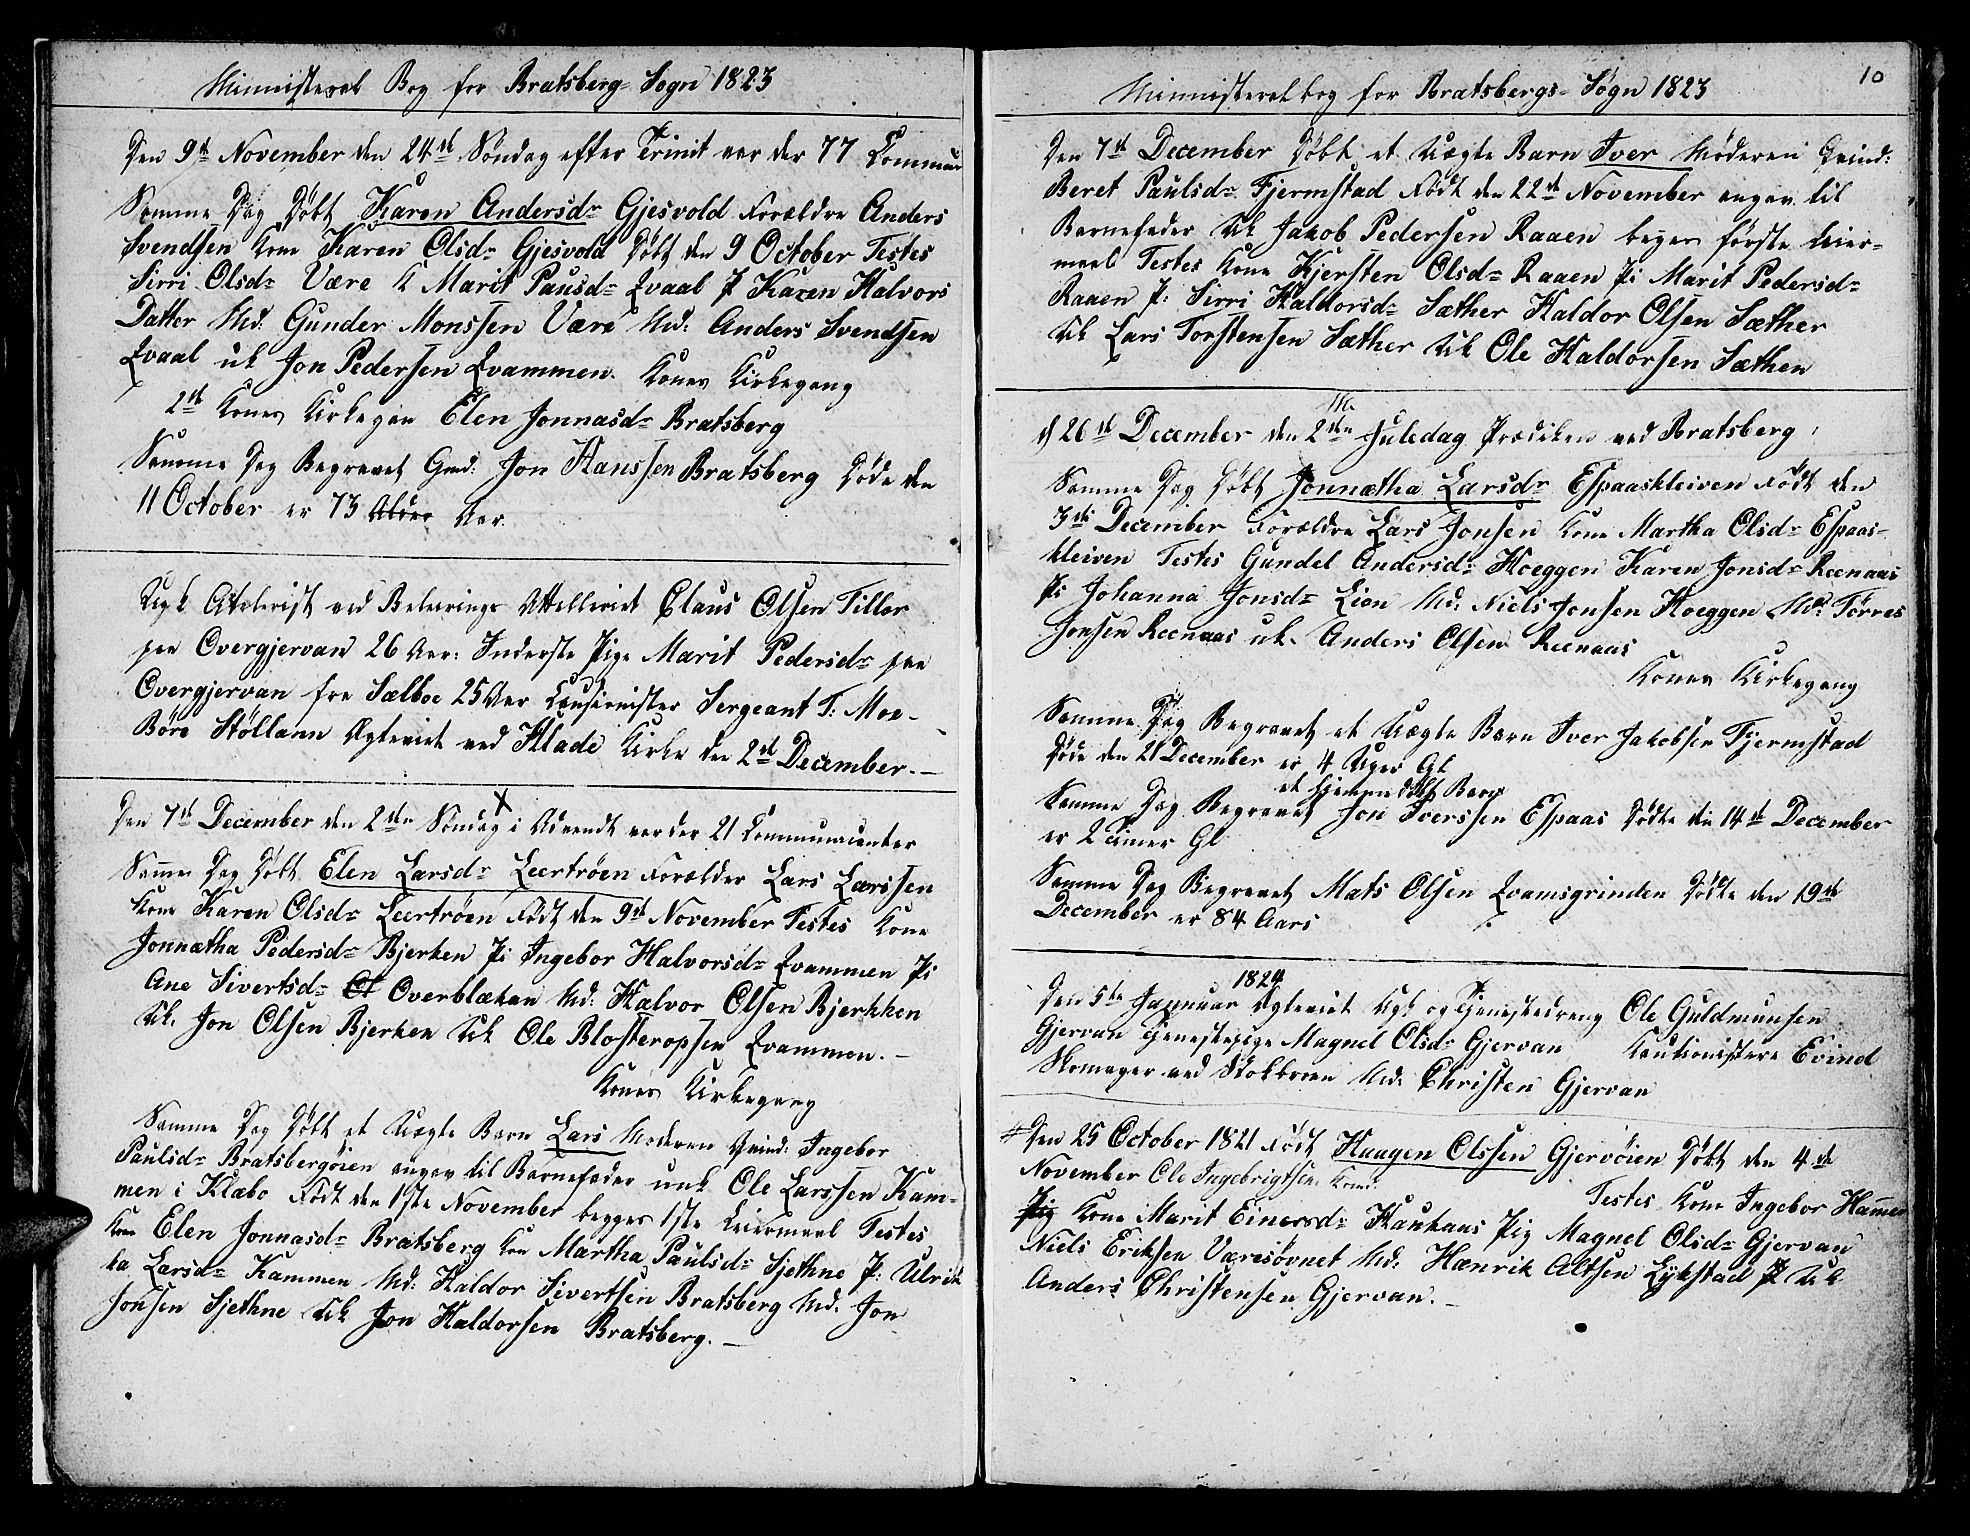 Ministerel Bog for Bratsberg Sogn 1823
Den 9de November den 24de Søndag efter Trinit var der 77 Commun
Samme Dag Døbt Karen Andersdr Gjesvold Forældre Anders
Svendsen Kone Karen Olsdr Gjesvold Døbt den 9 October Testes
Sirri Olsdr Være K Marit Pausdr Qvaal P Karen Halvors
Datter Md: Gunder Monssen Være Md: Anders Svendsen
Qvaal uk Jon Pedersen Qvammen. Kones Kirkegang
2de Kones Kirkegan Elen Jonnasdr Bratsberg
Samme Dag Begravet Gmd: Jon Hanssen Bratsberg Døde den
11 October er 73 Alder Aar.
Ugk ved Claus Olsen Tiller
paa Overgjervan 26 Aar: Inderste Pige Marit Pedersdr paa
Overgjervan fra Sælboe 25 Aar Sergeant T: Moe-
Børe Stöllann Egteviet ved Hlade Kirke den 2de December.
Den 7de December den 2den Søndag i Advendt var der 21 Communicanter
Samme Dag Døbt Elen Larsdr Leertröen Forælder Lars Larssen
Kone Karen Olsdr Leertröen Födt den 9de November Testes Kone
Jonnætha Pedersdr Bjerken Pi Ingebor Halvorsdr Qvammen Pi
Ane Sivertsdr Ol Overblækan Md: Halvor Olsen Bjerkken
Uk. Jon Olsen Bjerken Uk Ole Blosteropsen Qvammen.
Kones Kirkegang
Samme Dag Döbt et Uægte Barn Lars Moderen Qvind: Ingebor
Paulsdr Bratsbergöien angav til Barnefader unk Ole Larssen Kam-
men i Klæbo Födt den 1ste November begges 1ste Leiermaal Testes
Kon Elen Jonnasdr Bratsberg Kon Martha Paulsdr Sjethne P: Ulrik
ka Larsdr Kammen Md: Haldor Sivertsen Bratsberg Md. Jon
Jonsen Sjethne Uk Jon Haldorsen Bratsberg.
10
Ministerel bog for Bratsbergs Søgn 1823
Den 7de December Döbt et Uægte Barn Iver Möderen Qvind:
Beret Paulsdr Fjermstad Födt den 22de November angav til
Barnefader Uk Jakob Pedersen Raaen beges förste Leier-
maal Testes Kone Kjersten Olsdr Raaen Pi Marit Pedersdr
Raaen P: Sirri Haldorsdr Sæther Haldor Olsen Sæther
Uk Lars Torstensen Sæther Uk Ole Haldorsen Sæthen
d 26de December den 2den Juledag Prædiken ved Bratsberg
Samme Dag Döbt Jonnætha Larsdr Espaaskleiven Födt den
3de December Forældre Lars Jonsen Kone Martha Olsdr Espaas-
kleiven Testes Gundel Andersdr Hoeggen Karen Jonsdr Reenaas
Pi Johanna Jonsdr Lien Md. Niels Jonsen Hoeggen Md: Törres
Jonsen Reenaas uk. Anders Olsen Reenaas
Kones Kirkegang
Samme Dag Begravet et Uægte Barn Iver Jakobsen Fjermstad
Döde den 21 December er 4 Uger Gl
et hjemmedöbt Barn
Samme Dag Begravet Jon Iverssen Espaas Födte den 14de December
er 2 timer Gl
Samme Dag Begravet Mats Olsen Qvamsgrinden Dödte den 19de
December er 84 Aars
1824
Den 5te Januar Egteviet Ugk og Tjenestedreng Ole Guldmunsen
Gjervan tjenestepige Magnel Olsdr Gjervan Kautionistere Evind
Skomager ved Stokkaien Md: Christen Gjervan
Den 25 October 1821 Födt Haagen Olssen Gjervöien Döbt den 4de
November Ole Ingebrigtsen Kone: Testes Kone Ingebor Hamer
Pig Kone Marit Einersdr Haukaas Pig Magnel Olsdr Gjervan
Niels Eriksen Væresövnet Md. Hænrik Altsen Lykstad P Uk
Anders Christensen Gjervan.